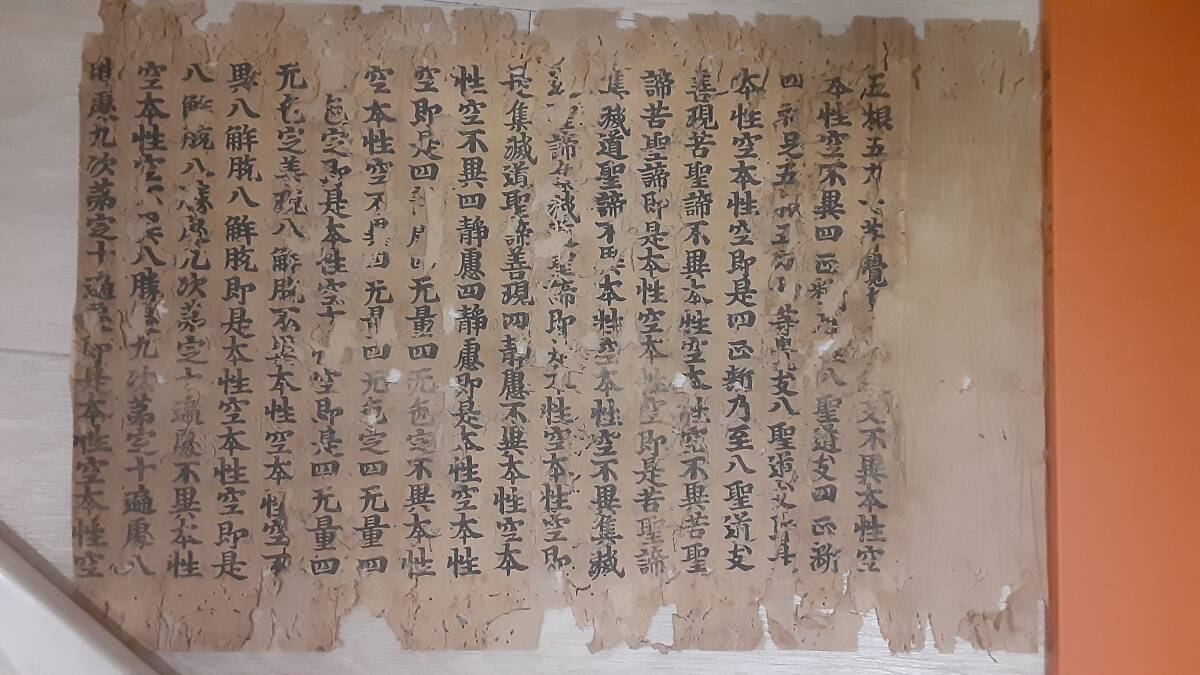 五根五力 覺 支不異本性空
本性空不異四正 八聖道支四正斷
四 足五根五力 等覺支八聖道支即是
本性空本性空即是四正斷乃至八聖道支
善現苦聖諦不異本性空本性空不異苦聖
諦苦聖諦即是本性空本性空即是苦聖諦
集滅道聖諦不異本性空本性空不異集滅
聖諦集滅道聖諦即 性空本性空即
是集滅道聖諦善現四靜慮不異本性空本
性空不異四靜慮四靜慮即是本性空本性
空即是四 四无量四无色定不異本性
空本性空不異四无量四无色定四无量四
色定即是本性空 空即是四无量四
无色定善現八解脫不異本性空本性空不
異八解脫八解脫即是本性空本性空即是
八解脫八勝處九次第定十遍處不異本性
空本性空 八勝處九次第定十遍處八
勝處九次第定十遍處即是本性空本性空